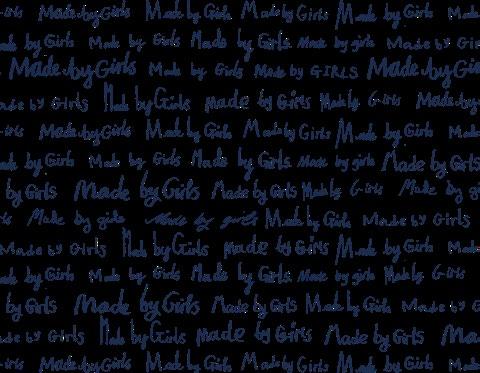 Girls Made by Girls Made by Girls Made by Girls Made by Girls Made
Made by Girls Made by Girls Made by Girls Made by girls Made by Girls
Made by Girls Made by Girls Made by GIRLS Made by Girls
Made by Girls Made by Girls Made by Girls Made by Girls Made by
Girls Made by Girls Made by Girls Made by Girls Made by Girls Made
Made by Girls Made by Girls Made by Girls Made by girls Made by Girls
by Girls Made by Girls Made by Girls Made by Girls Made by
Girls Made by girls Made by girls Made by Girls Made by Girls
Made by Girls Made by Girls Made by Girls Made by Girls Made
Made by Girls Made by Girls Made by Girls Made by girls Made by Girls
by Girls Made by Girls Made by Girls Made by Girls Made by
Made by Girls Made by Girls Made by Girls Made by Girls Made
Girls Made by Girls Made by Girls Made by Girls Made by Girls Made